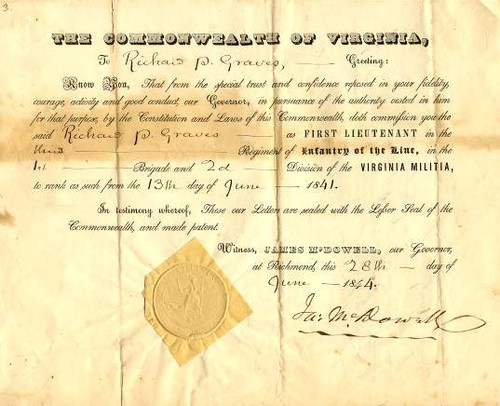 3.
THE COMMONWEALTH OF VIRGINIA,
To Richard P. Graves, Greeting:
Know You, That from the special trust and confidence reposed in your fidelity,
courage, activity and good conduct, our Governor, in pursuance of the authority vested in him
for that purpose, by the Constitution and Laws of this Commonwealth, doth commission you the
said Richard P. Graves as FIRST LIEUTENANT in the
Third Regiment of Infantry of the Line, in the
1st Brigade and 2d Division of the VIRGINIA MILITIA,
to rank as such from the 13th day of June 1841.
In testimony whereof, These our Letters are sealed with the Lesser Seal of the
Commonwealth, and made patent.
Witness, JAMES McDOWELL, our Governor,
at Richmond, this 28th day of
June 1844.
Jas McDowell